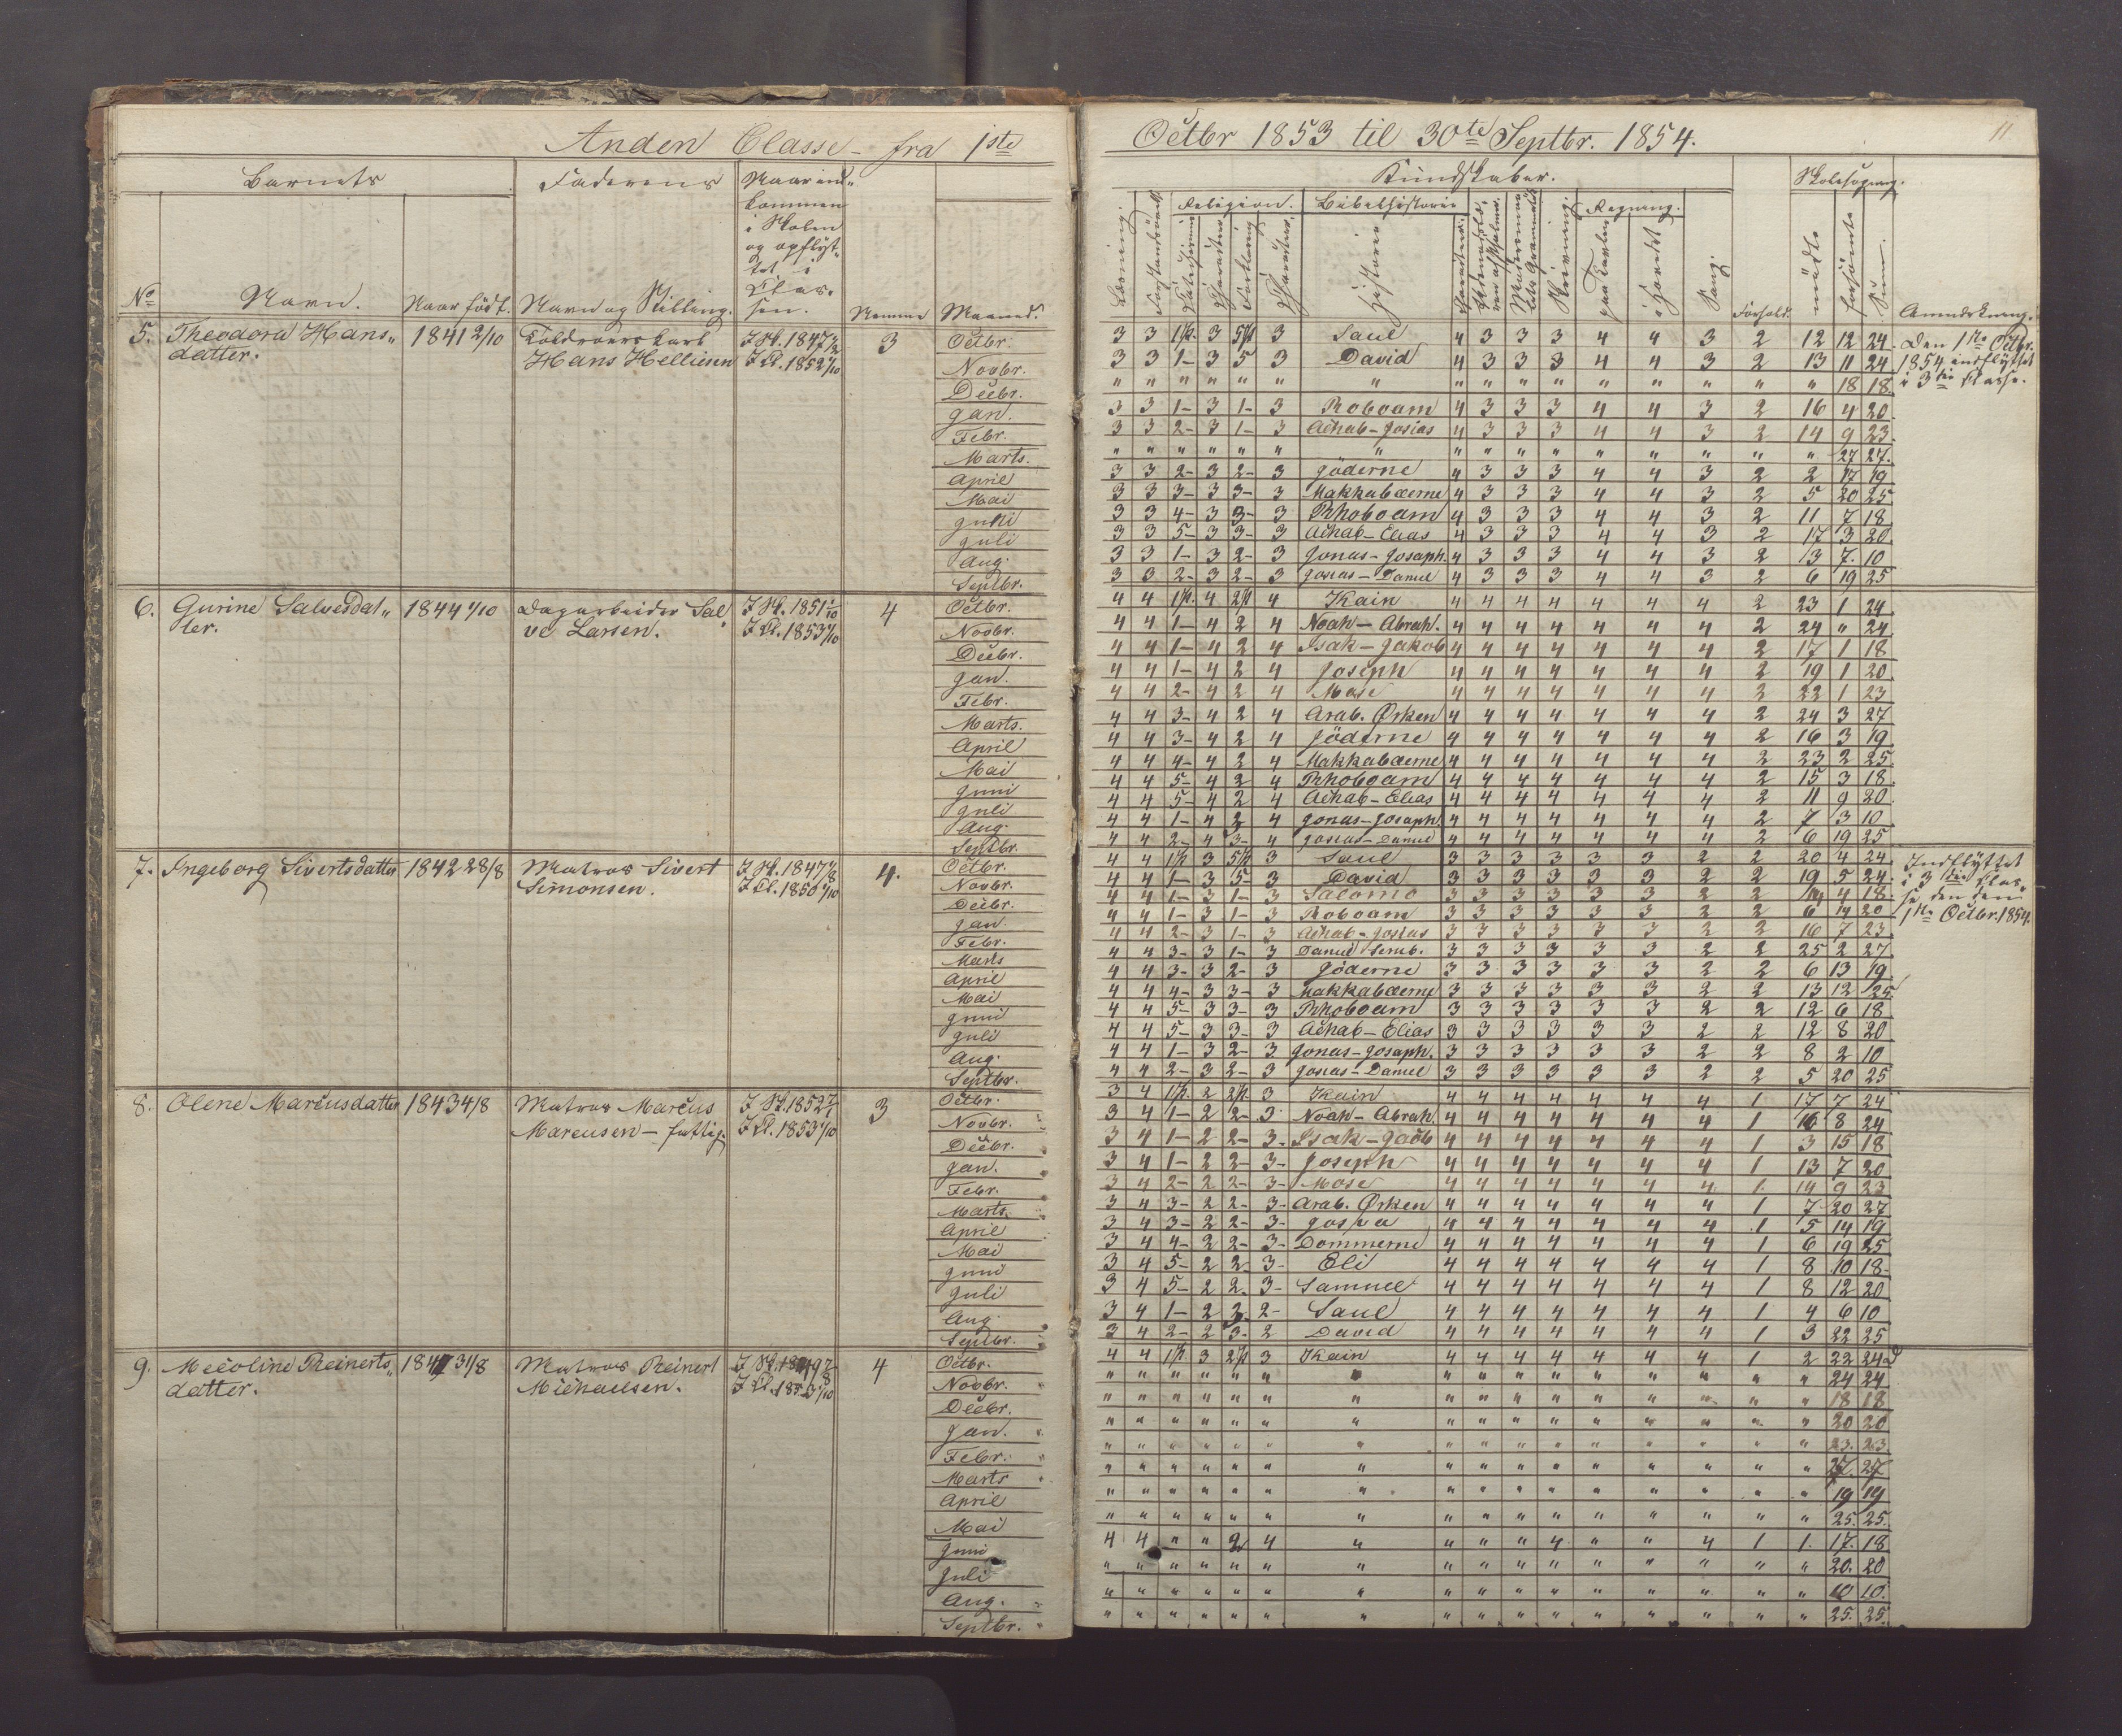 Anden Classe - fra 1ste
Octbr 1853 til 30te Septbr. 1854.
11
Barnets
Faderens
Naar ind-
kommen
i Skolen
og opflyt-
tet i
Clas-
sen.
No
Navn.
Naar født.
Navn og Stilling.
Nemme
Maaned.
Kundskaber.
Skolesøgning.
Religion.
Bibelhistorie
Regning.
Læsning.
Forklaring
Historie
Skrivning.
paa Tavlen
i Hovedet
Sang.
Forhold.
mødte
forsømte
Sum.
Anmærkning.
5. Theodora Hans-
datter.
1841 2/10
Hans Helliesen
I Kl. 1852 1/10
3
Octbr.
Novbr.
Decbr.
Jan.
Febr.
Marts.
April
Mai
Juni
Juli
Aug.
Septbr.
3 3 1/p. 3 5/p 3 Saul 4 3 3 3 4 4 3 2 12 12 24
3 3 1- 3 5 3 David 4 3 3 3 4 4 3 2 13 11 24
" " " " " " " " " " " " " " " " 18 18
3 3 1- 3 1- 3 Roboam 4 3 3 3 4 4 3 2 16 4 20
3 3 2- 3 1- 3 Achab-Josias 4 3 3 3 4 4 3 2 14 9 23
" " " " " " " " " " " " " " " " 27 27.
3 3 2- 3 2- 3 Jöderne 4 3 3 3 4 4 3 2 2 17 19
3 3 3- 3 3- 3 Makkabæerne 4 3 3 3 4 4 3 2 5 20 25
3 3 4- 3 3- 3 Rhoboam 4 3 3 3 4 4 3 2 11 7 18
3 3 5- 3 3- 3 Achab-Elias 4 3 3 3 4 4 3 2 17 3 20
3 3 1- 3 2- 3 Jonas-Josaph. 4 3 3 3 4 4 3 2 3 7 10
3 3 2- 3 2- 3 Josias-Daniel 4 3 3 3 4 4 3 2 6 19 25
Den 1ste Octbr.
1854 indflyttet
i 3die Klasse.
6. Gurine Salvesdat-
ter.
1844 1/10
Dagarbeider Sal-
ve Larsen.
I Sk. 1851 1/10
I Kl. 1853 1/10
4
Octbr.
Novbr.
Decbr.
Jan.
Febr.
Marts.
April
Mai
Juni
Juli
Aug.
Septbr.
4 4 1/p. 4 2/p 4 Kain 4 4 4 4 4 4 4 2 23 1 24
4 4 1- 4 2 4 Noah-Abrah. 4 4 4 4 4 4 4 2 24 " 24
4 4 1- 4 2 4 Isak-Jakob 4 4 4 4 4 4 4 2 17 1 18
4 4 1- 4 2 4 Joseph 4 4 4 4 4 4 4 2 19 1 20
4 4 2- 4 2 4 Mose 4 4 4 4 4 4 4 2 22 1 23
4 4 3- 4 2 4 Arab. Ørken 4 4 4 4 4 4 4 2 24 3 27
4 4 3- 4 2 4 Jöderne 4 4 4 4 4 4 4 2 16 3 19
4 4 4- 4 2 4 Makkabæerne 4 4 4 4 4 4 4 2 23 2 25
4 4 5- 4 2 4 Rhoboam 4 4 4 4 4 4 4 2 15 3 18
4 4 5- 4 2 4 Achab-Elias 4 4 4 4 4 4 4 2 11 9 20
4 4 1- 4 2 4 Jonas-Josaph. 4 4 4 4 4 4 4 2 7 3 10
4 4 2- 4 3- 4 Josias-Daniel 4 4 4 4 4 4 4 2 6 19 25
7. Ingeborg Sivertsdatter
1842 28/8
Matros Sivert
Simonsen.
I Sk. 1847 1/8
I Kl. 1850 1/10
4.
Octbr.
Novbr.
Decbr.
Jan.
Febr.
Marts
April
Mai
Juni
Juli
Aug.
Septbr.
4 4 1/p 3 5/p 3 Saul 3 3 3 3 3 3 2 2 20 4 24
4 4 1- 3 5- 3 David 3 3 3 3 3 3 2 2 19 5 24
4 4 1- 3 1- 3 Salomo 3 3 3 3 3 3 2 2 14 4 18
4 4 1- 3 1- 3 Roboam 3 3 3 3 3 3 2 2 6 14 20
4 4 2- 3 1- 3 Achab-Josias 3 3 3 3 3 3 2 2 16 7 23
4 4 3- 3 1- 3 Daniel Serub. 3 3 3 3 3 3 2 2 25 2 27
4 4 3- 3 2- 3 Jöderne 3 3 3 3 3 3 2 2 6 13 19
4 4 4- 3 3- 3 Makkabæerne 3 3 3 3 3 3 2 2 13 12 25
4 4 5- 3 3- 3 Rhoboam 3 3 3 3 3 3 2 2 12 6 18
4 4 5- 3 3- 3 Achab-Elias 3 3 3 3 3 3 2 2 12 8 20
4 4 1- 3 2- 3 Jonas-Josaph. 3 3 3 3 3 3 2 2 8 2 10
4 4 2- 3 2- 3 Josias-Daniel 3 3 3 3 3 3 2 2 5 20 25
Indflyttet
i 3die Klas-
se den
1ste Octbr. 1854.
8. Olene Marcusdatter
1843 4/8
Matros Marcus
Marcusen - fattig.
I Sk. 1852 7/1
I Kl. 1853 1/10
3
Octbr.
Novbr.
Decbr.
Jan.
Febr.
Marts.
April
Mai
Juni
Juli
Aug.
Septbr.
3 4 1/p. 2 2/p. 3 Kain 4 4 4 4 4 4 4 1 17 7 24
3 4 1- 2 2- 3 Noah-Abrah. 4 4 4 4 4 4 4 1 16 8 24
3 4 1- 2 2- 3- Isak-Jacob 4 4 4 4 4 4 4 1 3 15 18
3 4 1- 2 2- 3- Joseph 4 4 4 4 4 4 4 1 13 7 20
3 4 2- 2 2- 3- Mose 4 4 4 4 4 4 4 1 14 9 23
3 4 3- 2 2- 3- Arab. Ørken 4 4 4 4 4 4 4 1 7 20 27
3 4 3- 2 2- 3- Josva 4 4 4 4 4 4 4 1 5 14 19
3 4 4- 2 2- 3- Dommerne 4 4 4 4 4 4 4 1 6 19 25
3 4 5- 2 2- 3- Eli 4 4 4 4 4 4 4 1 8 10 18
3 4 5- 2 2- 3- Samuel 4 4 4 4 4 4 4 1 8 12 20
3 4 1- 2 2- 2- Saul 4 4 4 4 4 4 4 1 4 6 10
3 4 2- 2 3- 2 David 4 4 4 4 4 4 4 1 3 22 25
9. Mecoline Reinerts-
datter.
31/8
Matros Reinert
Michaelsen.
4
Octbr.
Novbr.
Decbr.
Jan.
Febr.
Marts
April
Mai
Juni
Juli
Aug.
Septbr.
4 4 1/p 3 2/p 3 Kain 4 4 4 4 4 4 4 1 2 22 24
" " " " " " " " " " " " " " " 24 24
" " " " " " " " " " " " " " " 18 18
" " " " " " " " " " " " " " " 20 20
" " " " " " " " " " " " " " " 23. 23.
" " " " " " " " " " " " " " " 27 27
" " " " " " " " " " " " " " " 19 19
" " " " " " " " " " " " " " " 25. 25.
4 4 " " 2 4 " " " " 4 " " 4 1 1. 17. 18
" " " " " " " " " " " " " " " 20. 20
" " " " " " " " " " " " " " " 10 10.
" " " " " " " " " " " " " " " 25. 25.